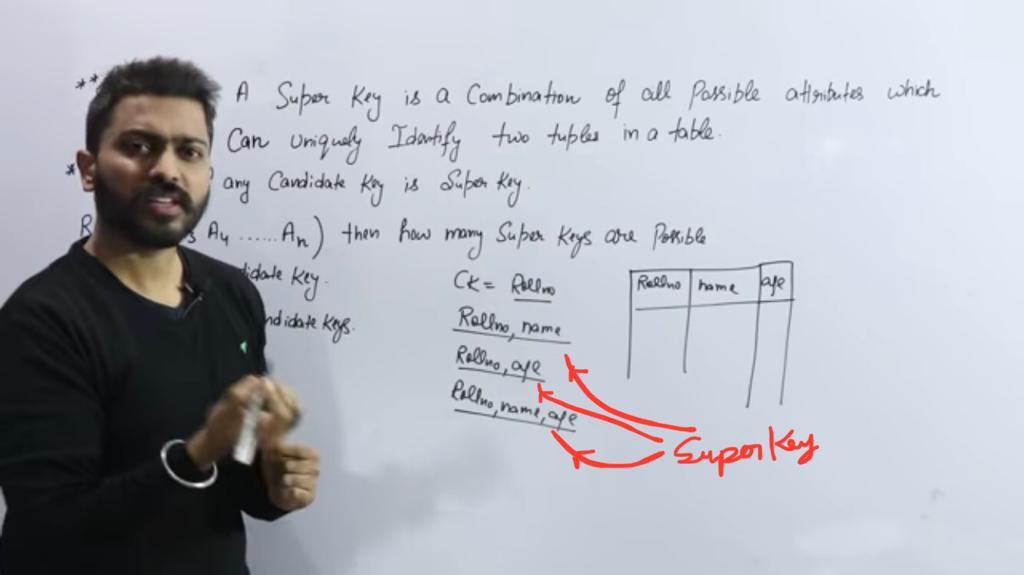 ** A Super Key is a Combination of all Possible attributes which
Can uniquely Identify two tuples in a table.
* any Candidate Key is Super Key.
A4 ......An) then how many Super Keys are Possible
Key.
Keys.
CK = Rollno
Rollno, name
Rollno, age
Rollno, name, age
Rollno name age
Super Key